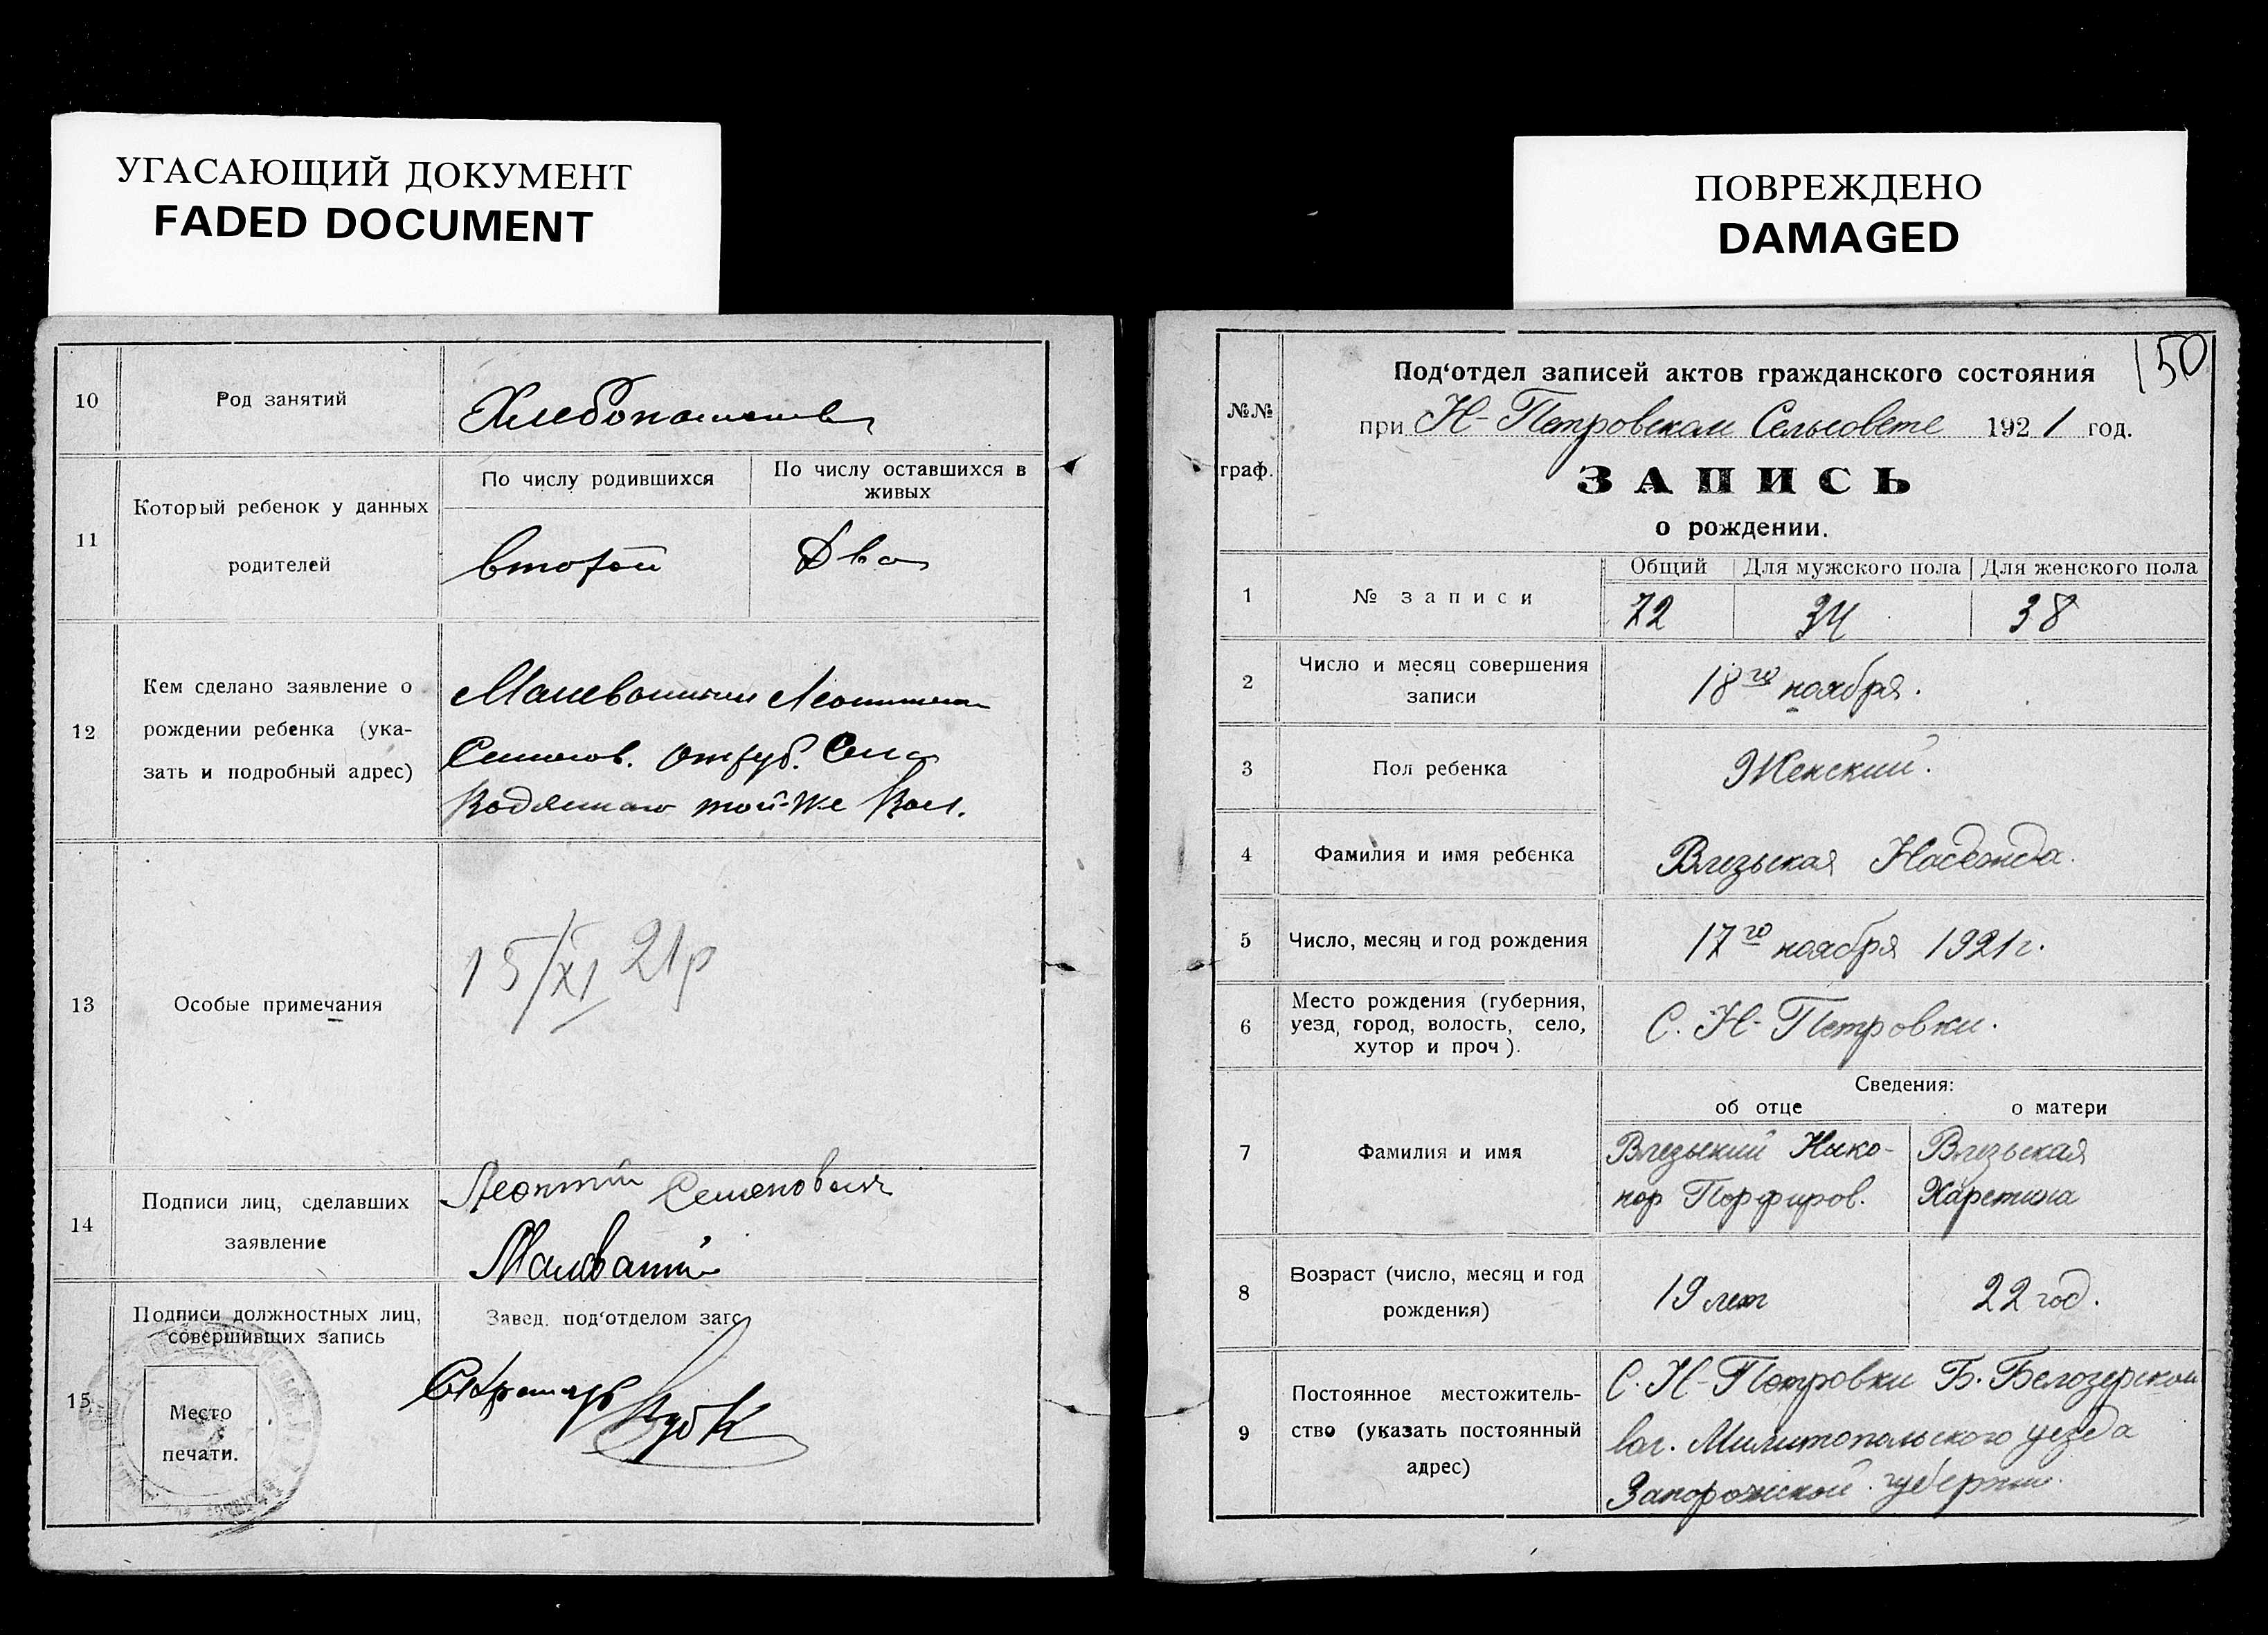 УГАСАЮЩИЙ ДОКУМЕНТ
FADED DOCUMENT
ПОВРЕЖДЕНО
DAMAGED
10
Род занятий
Хлебопашев
11
Который ребенок у данных
родителей
По числу родившихся
По числу оставшихся в
живых
второй
Два
12
Кем сделано заявление о
рождении ребенка (ука-
зать и подробный адрес)
Леонтием
отруб. Села
Водянаго той-же Вол.
13
Особые примечания
15/XI 21р
14
Подписи лиц, сделавших
заявление
Леонтий Семеновыч
15
Подписи должностных лиц,
совершивщих запись
Место
печати.
Завед. под‘отделом загс
Секретарь
150
№№
граф.
Под‘отдел записей актов гражданского состояния
при Н-Петровском Сельсовете 1921 год.
ЗАПИСЬ
о рождении.
1
№ записи
Общий
Для мужского пола
Для женского пола
72
34
38
2
Число и месяц совершения
записи
18го ноября.
3
Пол ребенка
Женский.
4
Фамилия и имя ребенка
Надежда.
5
Число, месяц и год рождения
17го ноября 1921г.
6
Место рождения (губерния,
уезд, город, волость, село,
хутор и проч).
С. Н-Петровки.
Сведения:
об отце
о матери
7
Фамилия и имя
Нико-
нор Порфиров.
Харетина
8
Возраст (число, месяц и год
рождения)
19 лет
22 год.
9
Постоянное местожитель-
ство (указать постоянный
адрес)
С. Н-Петровки Б. Белозерской
вол. Милитопольского уезда
Запорожской губернии.